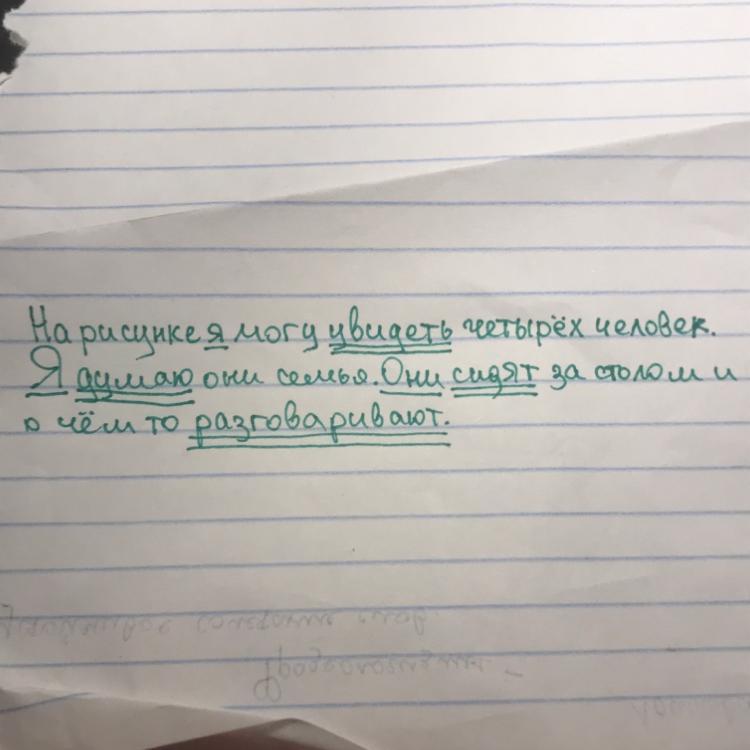 На рисунке я могу увидеть четырёх человек.
Я думаю они семья. Они сидят за столом и
о чём то разговаривают.